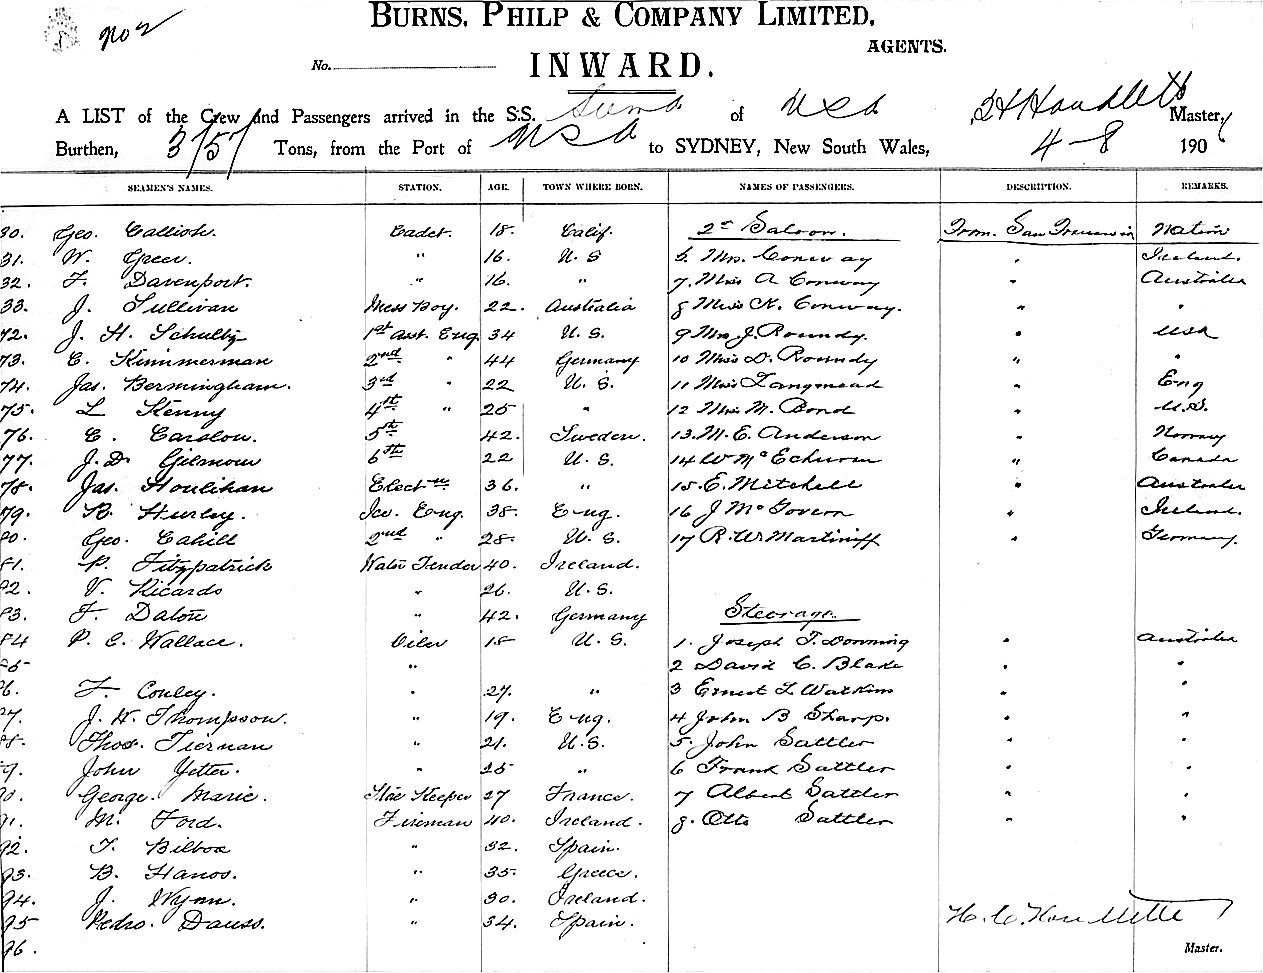 No 2
BURNS, PHILP & COMPANY LIMITED,
AGENTS.
No.
INWARD.
A LIST of the Crew and Passengers arrived in the S.S. of USA Master,
Burthen, 3157 Tons, from the Port of USA to SYDNEY, New South Wales, 4-8 190
SEAMEN'S NAMES. STATION. AGE. TOWN WHERE BORN. NAMES OF PASSENGERS. DESCRIPTION. REMARKS.
30. Geo. Cadet. 18. Calif. 2nd Saloon. From San Francisco Nation
31. W. Green. " 16. U.S 6 Mrs. Conway " Ireland.
32. F. Davenport. " 16. " 7. Miss A Conway " Australia
33. J. Sullivan Mess Boy. 22. Australia 8 Miss K. Conway. " "
72. J. H. Schultz 1st Asst. Eng 34 U.S. 9 Mrs J. Roundy. " USA
73. C. Kimmerman 2nd " 44 Germany 10 Miss D. Roundy " "
74. Jas. Bermingham. 3rd " 22 U.S. 11 Miss Langmead " Eng
75. L Kenny 4th " 25 " 12 Mrs. M. Bond " U.S.
76. C. Carslow. 5th 42. Sweden. 13. M. E. Anderson " Norway
77. J. D. Gilmour 6th 22 U.S. 14 W Mc " Canada
78. Jas. Houlihan 36. " 15. E. Mitchell " Australia
79. R. Hurley. Eng. 38. Eng. 16 J McGovern " Ireland.
80. Geo. Cahill 2nd " 28. U.S. 17 R. W. Martinoff " Germany.
81. P. Fitzpatrick Water Tender 40. Ireland.
82. V. Ricardo " 26. U.S.
83. F. " 42. Germany Steerage.
84 P. C. Wallace. Oiler 18 U.S. 1. Joseph T. Downing " Australia
85 " 2 David C. Blake " "
86. F. Conley. " 27. " 3 Ernest L Watkins " "
87. J. W. Thompson. " 19. Eng. 4 John B Sharp. " "
88. Thos. Tiernan " 21. U.S. 5. John Sattler " "
89. John Yetter. " 25 " 6 Frank Sattler " "
90. George. Marie. Store Keeper 27 France. 7 Albert Sattler " "
91. M. Ford. Fireman 40. Ireland. 8. Otto Sattler " "
92. T. Bilboa " 32. Spain.
93. B. Hanos. " 35. Greece.
94. J. Wynn. " 30. Ireland.
95 Pedro. Dauss. " 34. Spain.
96.
Master.